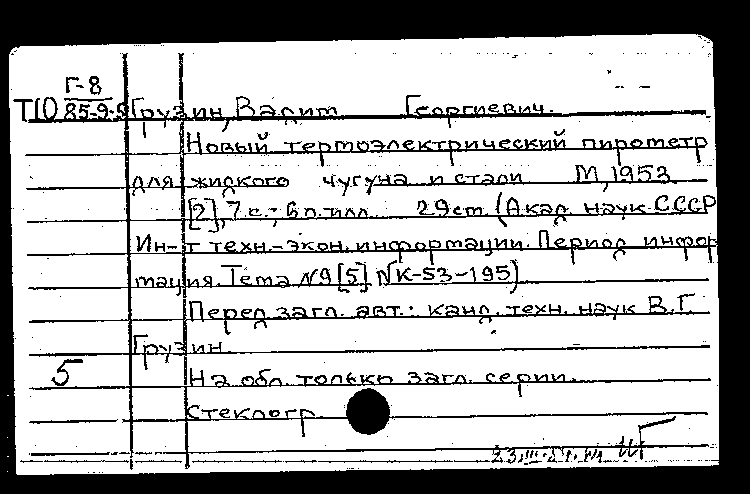 Г-8
Т10 85-9-5 Грузин, Вадим Георгиевич.
Новый термоэлектрический пирометр
для жидкого чугуна и стали М, 1953
[2], 7 с.; вкл. илл. 29 см. (Акад. наук СССР
Ин-т техн.-экон. информации. Период инфор
мация. Тема №9 [5] №К-53-195)
Перед загл. авт.: канд. техн. наук В.Г.
Грузин.
5 На обл. только загл. серии.
Стеклогр.